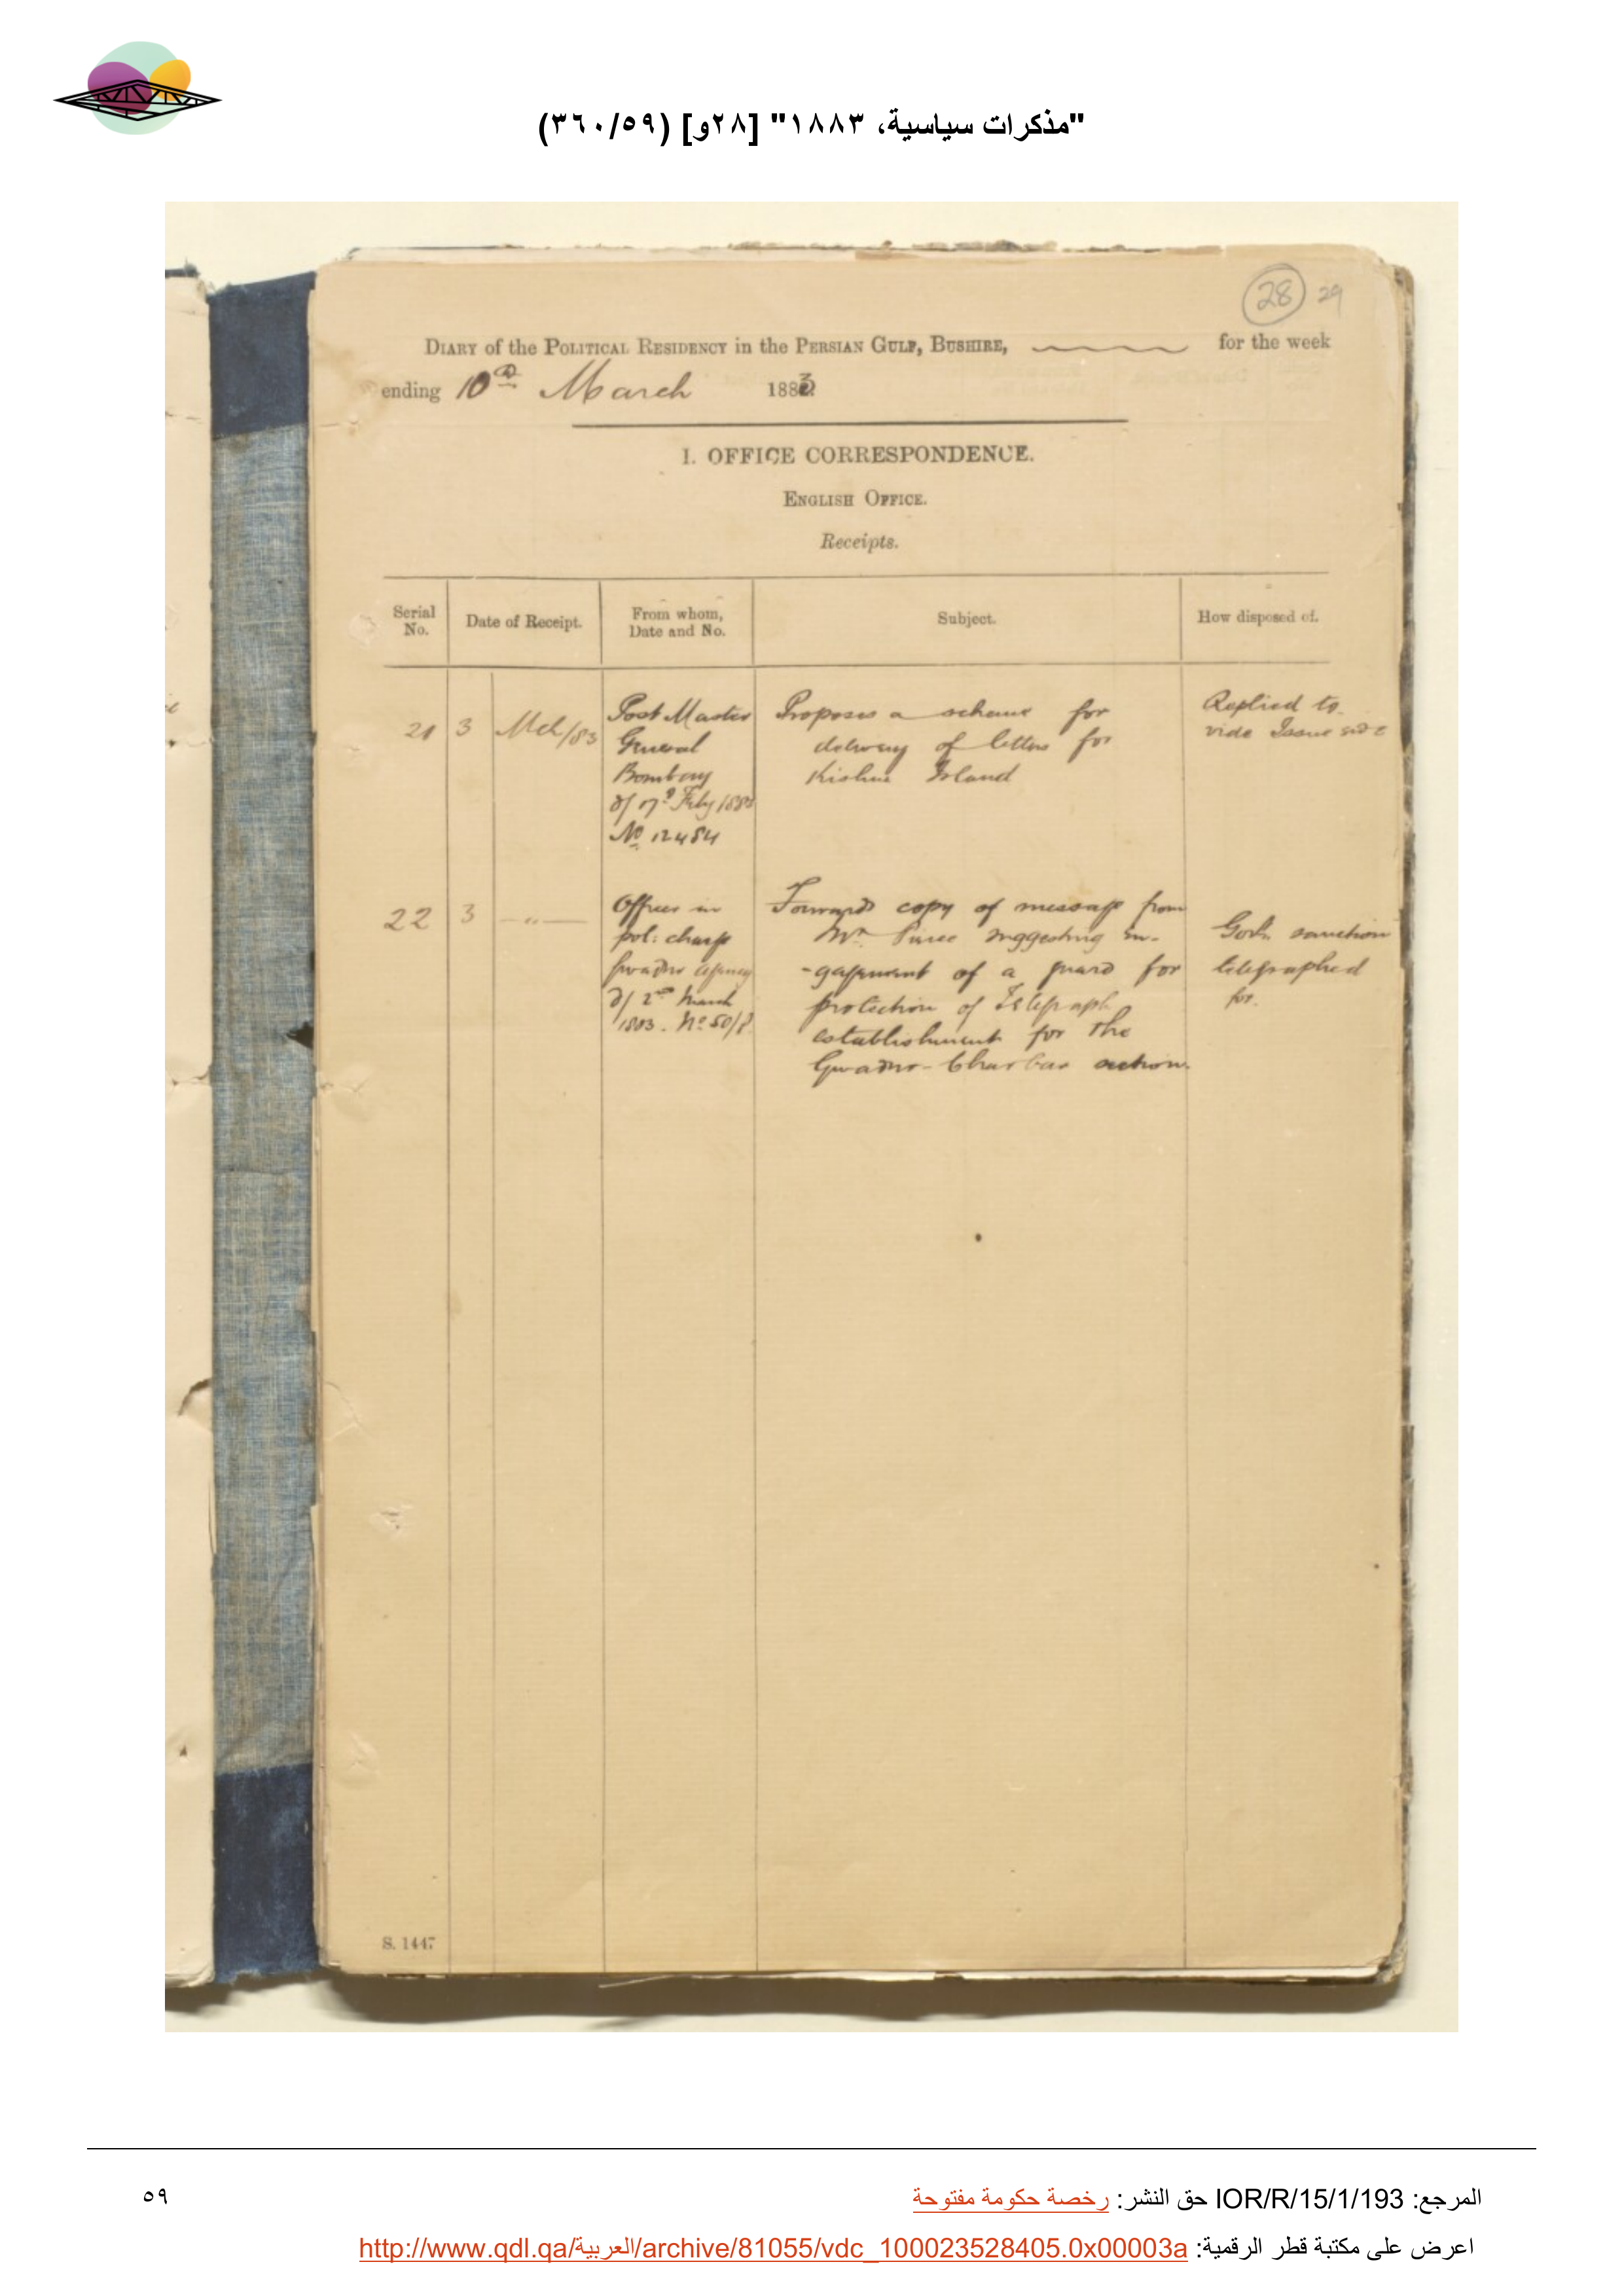 "مذكرات سياسية، ١٨٨٣" [٢٨و] (٣٦٠/٥٩)
28 29
DIARY of the POLITICAL RESIDENCY in the PERSIAN GULF, BUSHIRE, for the week
ending 10th March 1883
I. OFFICE CORRESPONDENCE.
ENGLISH OFFICE.
Receipts.
Serial No.
Date of Receipt.
From whom, Date and No.
Subject.
How disposed of.
21 3 Mch/83
Post Master
General
Bombay
d/ 17th Feby 1883
No 12484
Proposes a scheme for
delivery of letters for
Kishm Island
Replied to
vide Issue side
22 3 -"-
Officer in
pol: charge
Gwadur Agency
d/ 2nd March
1883. No 50/
Forwards copy of message from
Mr. suggesting en-
-gagement of a guard for
protection of Telegraph
establishment for the
Gwadur - Charbar section.
Govt. sanction
telegraphed
for.
S. 1447
المرجع: IOR/R/15/1/193 حق النشر: رخصة حكومة مفتوحة
٥٩
اعرض على مكتبة قطر الرقمية: http://www.qdl.qa/العربية/archive/81055/vdc_100023528405.0x00003a